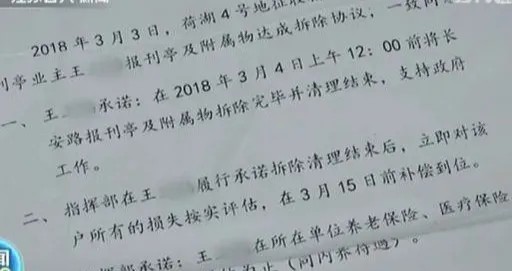 2018年3月3日，荷湖4号地征收
刊亭业主王 报刊亭及附属物达成拆除协议，一致同
一、王 承诺：在2018年3月4日上午12：00前将长
安路报刊亭及附属物拆除完毕并清理结束，支持政府
工作。
二、指挥部在王 履行承诺拆除清理结束后，立即对该
户所有的损失按实评估，在3月15日前补偿到位。
指挥部承诺：王 在所在单位养老保险、医疗保险
为止（同内养待遇）。